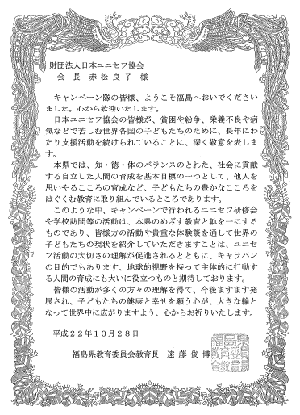 財団法人日本ユニセフ協会
会長 赤松良子 様
キャンペーン隊の皆様、ようこそ福島へおいでください
ました。心から歓迎いたします。
日本ユニセフ協会の皆様が、貧困や紛争、栄養不良や病
気などで苦しむ世界各国の子どもたちのために、長年にわ
たり支援活動を続けられていることに、深く敬意を表しま
す。
本県では、知・徳・体のバランスのとれた、社会に貢献
する自立した人間の育成を基本目標の一つとして、他人を
思いやるこころの育成など、子どもたちの豊かなこころを
はぐくむ教育に取り組んでいるところであります。
このような中、キャンペーンで行われるユニセフ研修会
や学校訪問等の活動は、本県のめざす教育と軌を一にする
ものであり、皆様方の活動や貴重な体験談を通して世界の
子どもたちの現状を紹介していただきますことは、ユニセ
フ活動の大切さの理解が促進されるとともに、キャラバン
の目的でもあります、地球的視野を持って主体的に行動す
る人間の育成にも大いに役立つものと期待しております。
皆様の活動が多くの方々の理解を得て、今後ますます発
展され、子どもたちの健康と幸せを願う心が、大きな輪と
なって世界中に広がりますよう、心からお祈りいたします。
平成22年10月28日
福島県教育委員会教育長 遠藤俊博